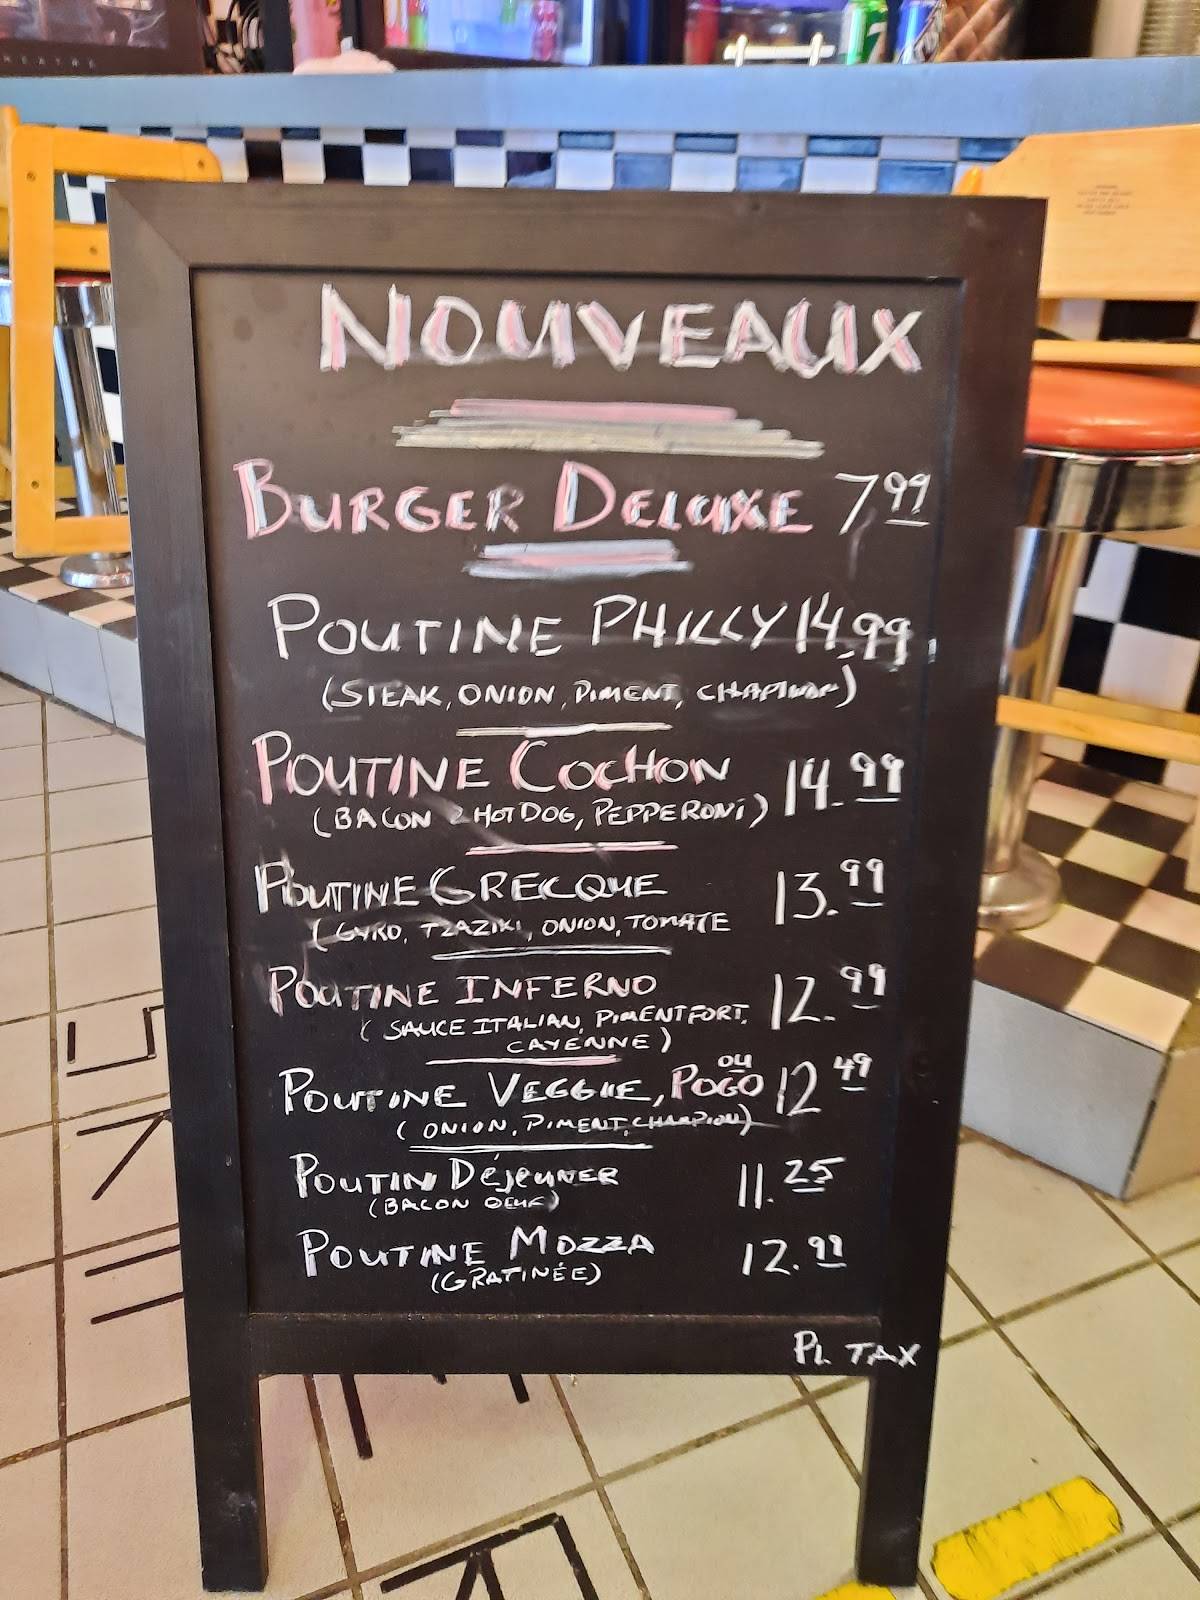 NOUVEAUX
BURGER DELUXE 7.99
POUTINE PHILLY 14.99
(STEAK, ONION, PIMENT,
POUTINE COCHON 14.99
(BACON 2 HOT DOG, PEPPERONI)
POUTINE GRECQUE 13.99
(GYRO, TZAZIKI, ONION, TOMATE
POUTINE INFERNO 12.99
(SAUCE ITALIAN, PIMENT FORT,
CAYENNE)
POUTINE VEGGIE, OU POGO 12 49
(ONION, PIMENT, CHAMPION)
POUTIN DÉJEUNER 11.25
(BACON OEUF)
POUTINE MOZZA 12.99
(GRATINÉE)
PL TAX